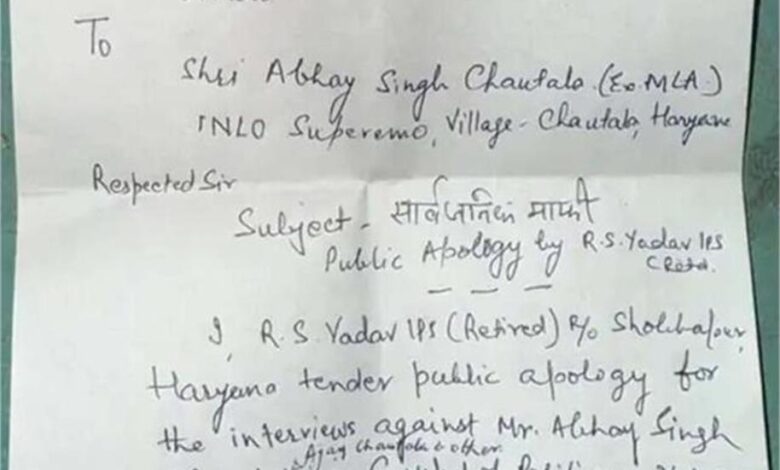 To
Shri Abhay Singh Chautala (Ex. MLA)
INLO Superemo, Village - Chautala, Haryana
Respected Sir
Subject - सार्वजनिक माफी
Public Apology by R.S. Yadav IPS
(Retd.
I, R. S. Yadav IPS (Retired) R/o
Haryana tender public apology for
the interviews against Mr. Abhay Singh
Ajay Chautala & other